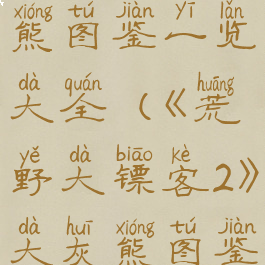 xióng tú jiàn yī lǎn
熊图鉴一览
dà quán huāng
大全(《荒
yě dà biāo kè
野大镖客2》
dà huī xióng tú jiàn
大灰熊图鉴